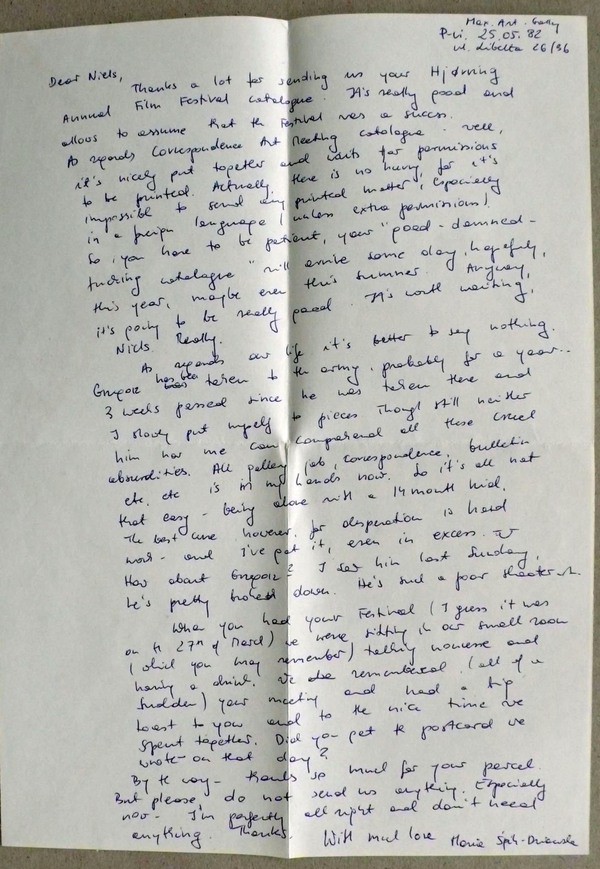 Max. Art. Gally
P-ń. 25.05.82
ul. Libelta 26/96
Dear Niels,
Thanks a lot for sending us your Hjørring
Annual Film Festival catalogue. It's really good and
allows to assume that the Festival was a success.
As regards Correspondence Art Meeting catalogue - well,
it's nicely put together and waits for permissions
to be printed. Actually, there is no hurry, for it's
impossible to send any printed matter, especially
in a foreign language (unless extra permissions).
So, you have to be patient, your "good-damned-
fucking catalogue" will arrive some day, hopefully,
this year, maybe even this summer. Anyway,
it's going to be really good. It's worth waiting,
Niels. Really.
As regards our life it's better to say nothing.
Grzegorz has been taken to the army, probably for a year...
3 weeks passed since he was taken there and
I slowly put myself to pieces though still neither
him nor me can comprehend all these cruel
absurdities. All gallery job, correspondence, bulletin
etc, etc is in my hands now. So it's all not
that easy - being alone with a 14 month kid.
The best cure however, for desperation is hard
work - and I've got it, even in excess.
How about Grzegorz? I saw him last Sunday,
he's pretty broken down. He's such a poor
When you had your Festival (I guess it was
on the 27th of March) we were sitting in our small room
(which you may remember) talking nonsense and
having a drink. We also remembered (all of a
sudden) your meeting and had a big
toast to you and to the nice time we
spent together. Did you get the postcard we
wrote on that day?
By the way - thanks so much for your parcel.
But please, do not send us anything. Especially
now - I'm perfectly all right and don't need
anything. Thanks. With much love